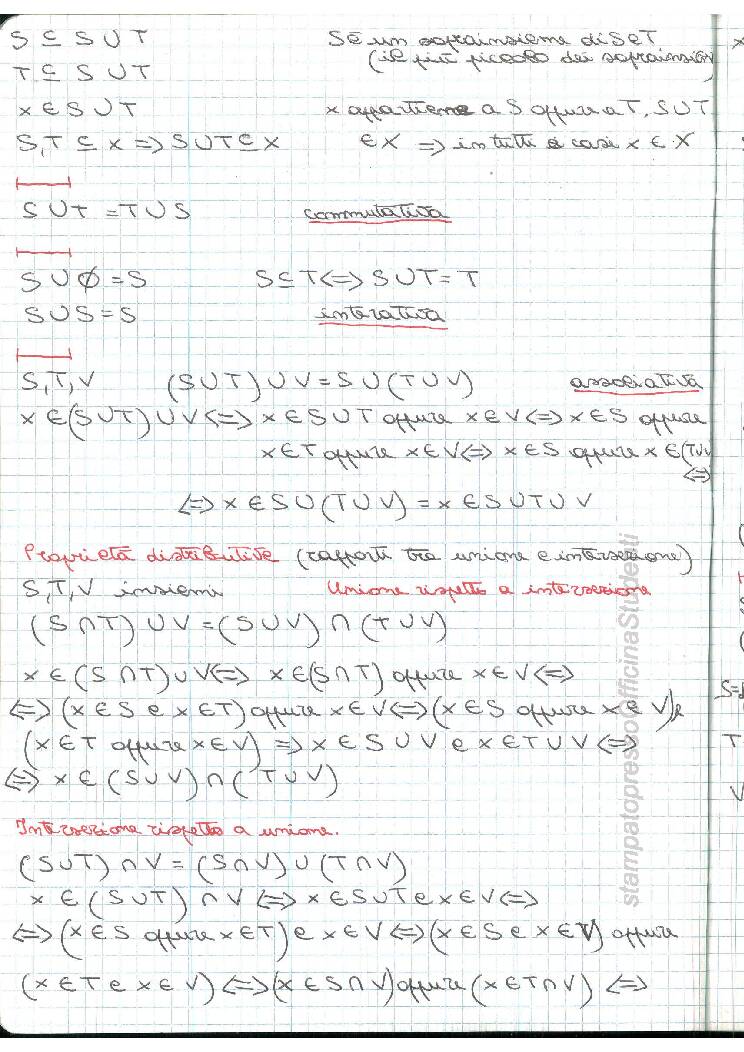 S ⊆ S ∪ T   S è un soprainsieme di S e T
T ⊆ S ∪ T   (il più piccolo dei soprainsiemi)
x ∈ S ∪ T   x appartiene a S oppure a T, S ∪ T
S,T ⊆ X => S ∪ T ⊆ X   ∈ X => in tutti e casi x ∈ X
S ∪ T = T ∪ S   commutativa
S ∪ ∅ = S   S ⊆ T <=> S ∪ T = T
S ∪ S = S   interativa
S,T,V   (S ∪ T) ∪ V = S ∪ (T ∪ V)   associativa
x ∈ (S ∪ T) ∪ V <=> x ∈ S ∪ T oppure x ∈ V <=> x ∈ S oppure
x ∈ T oppure x ∈ V <=> x ∈ S oppure x ∈ (T ∪ V
<=>
<=> x ∈ S ∪ (T ∪ V) = x ∈ S ∪ T ∪ V
Proprietà distributive (rapporti tra unione e intersezione)
S,T,V insiemi   Unione rispetto a intersezione
(S ∩ T) ∪ V = (S ∪ V) ∩ (T ∪ V)
x ∈ (S ∩ T) ∪ V <=> x ∈ (S ∩ T) oppure x ∈ V <=>
<=> (x ∈ S e x ∈ T) oppure x ∈ V <=> (x ∈ S oppure x ∈ V) e
(x ∈ T oppure x ∈ V) => x ∈ S ∪ V e x ∈ T ∪ V <=>
<=> x ∈ (S ∪ V) ∩ (T ∪ V)
Intersezione rispetto a unione.
(S ∪ T) ∩ V = (S ∩ V) ∪ (T ∩ V)
x ∈ (S ∪ T) ∩ V <=> x ∈ S ∪ T e x ∈ V <=>
<=> (x ∈ S oppure x ∈ T) e x ∈ V <=> (x ∈ S e x ∈ V) oppure
(x ∈ T e x ∈ V) <=> (x ∈ S ∩ V) oppure (x ∈ T ∩ V) <=>
stampatopressoOfficinaStudenti